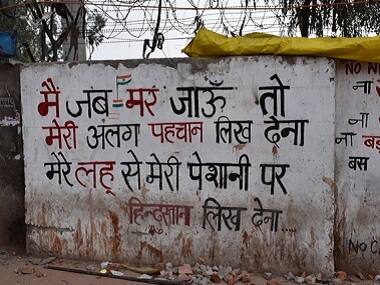 मैं जब मर जाऊँ तो
मेरी अलग पहचान लिख देना
मेरे लहू से मेरी पेशानी पर
हिन्दुस्तान लिख देना....
NO N
ना
ना
ना बड़
बस
NO C